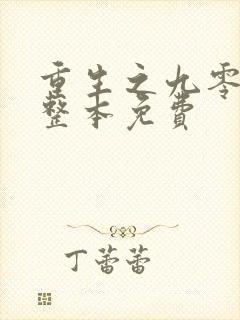 重生之九零
整本免费
丁蕾蕾